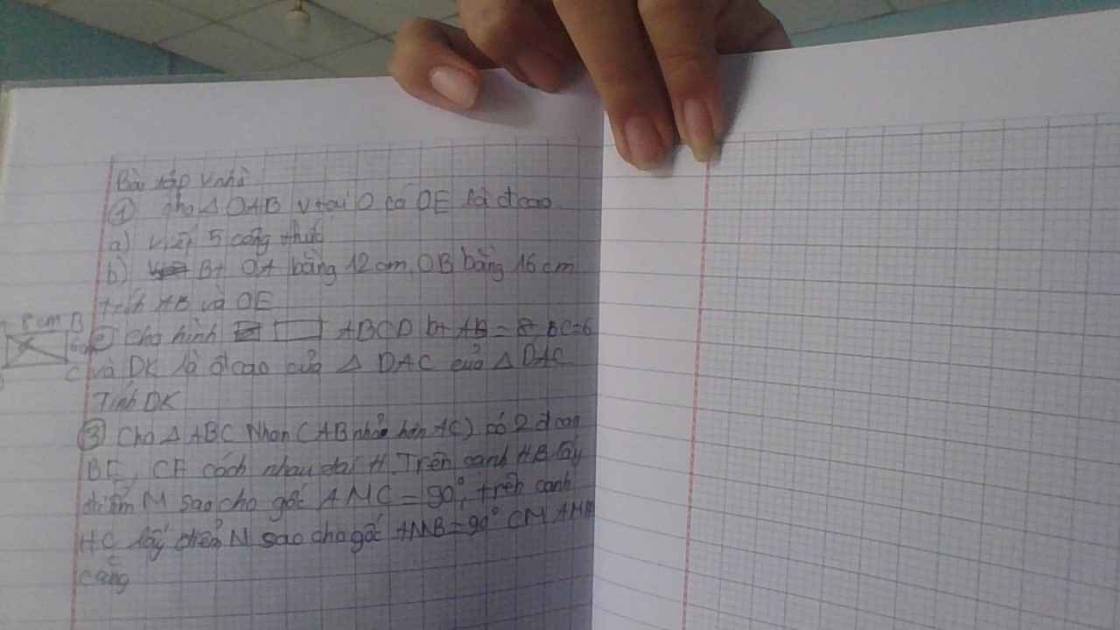 Bài tập vnhà
① Cho △ OAB v tại O có OE là đcao
a) Viết 5 công thức
b) Bt OA bằng 12 cm, OB bằng 16 cm
tính AB và OE
8cm B
② Cho hình ▭ ABCD bt AB = 8 BC=6
C
và DK là đcao của △ DAC của △ DAC
Tính DK
③ Cho △ ABC Nhọn (AB nhỏ hơn AC) có 2 đcao
BE, CF cách nhau tại H. Trên cạnh HB lấy
điểm M sao cho góc AMC = 90°, trên cạnh
HC lấy điểm N sao cho góc ANB = 90° CM AMN
cằng